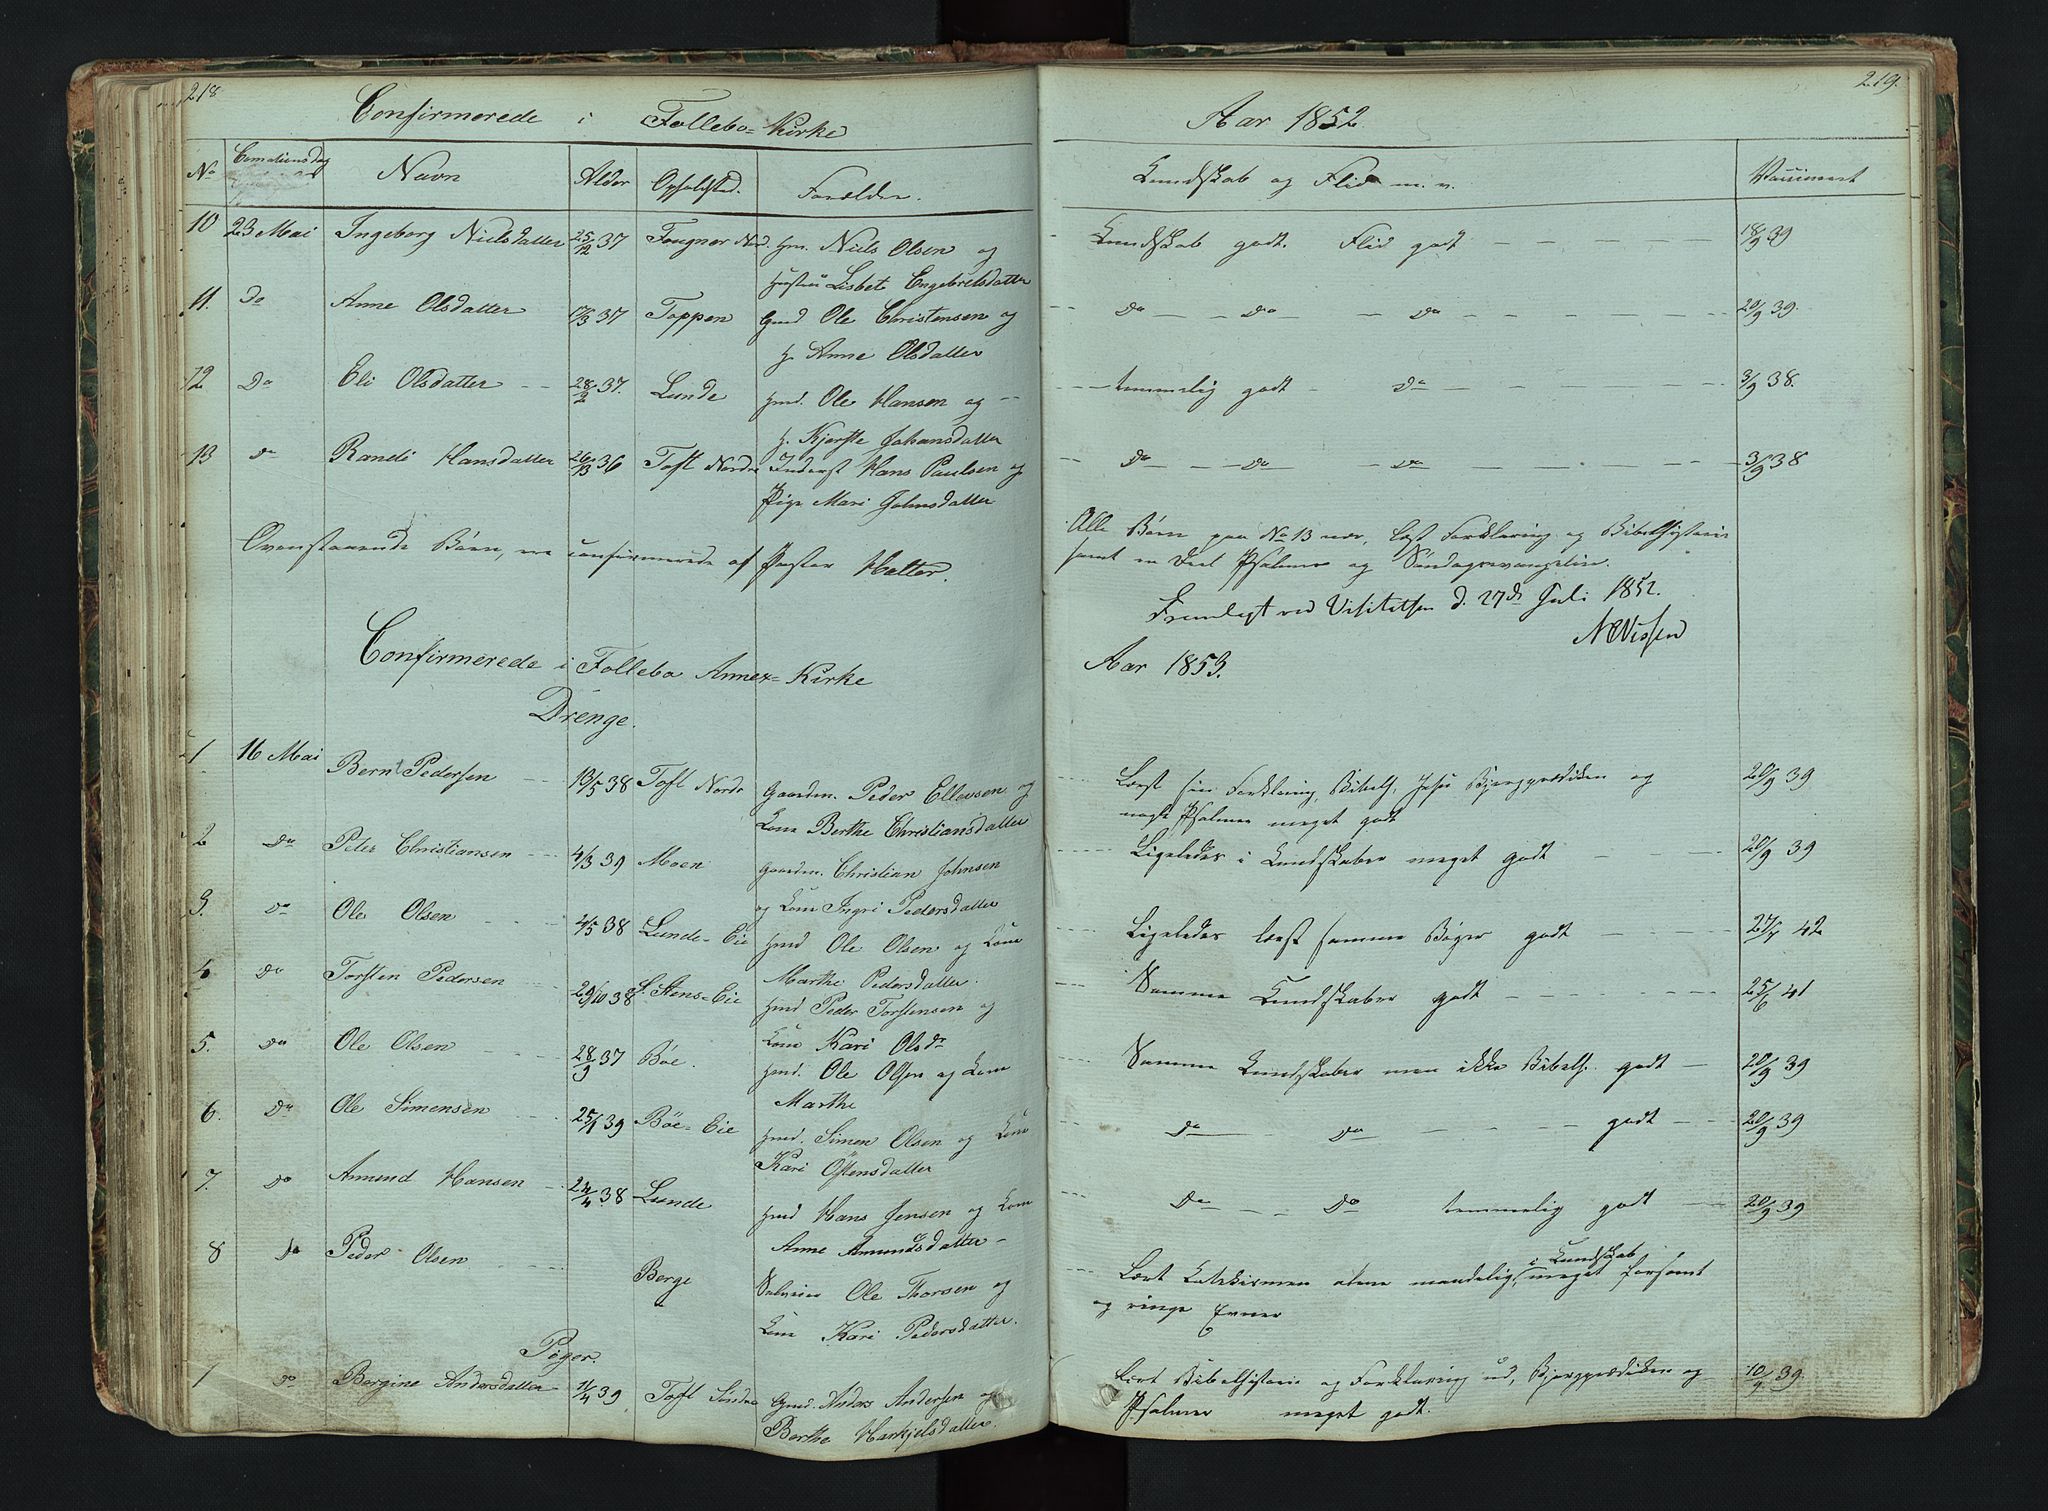 218.
Confirmerede i Follebo Kirke
No Navn Alder Opholdsted. Forældre.
10 23 Mai Ingeborg Nielsdatter 25/12 37 Fougner Nord. Gm. Niels Olsen og
Hustru Lisbet Engebretsdatter
11. Do Anne Olsdatter 17/3 37 Toppen Gmd Ole Christensen og
H. Anne Olsdatter
12 Do Eli Olsdatter 28/2 37. Lunde Hmd. Ole Hansen og
H. Kjerstie Johansdatter
13 Do Randi Hansdatter 26/13 36 Toft Nordre Inderst Hans Paulsen og
Pige Mari Johnsdatter
Ovenstaaende Børn, ere confirmerede af Pastor Halter.
Confirmerede i Follebo Annex-Kirke
Drenge.
1 16 Mai Bernt Pedersen 13/5 38 Toft Nordr Gaardm. Peder Ellevsen og
Kone Berthe Christiansdatter
2 Do Peter Christiansen 4/3 39 Moen Gaardm. Christian Johnsen
og Kone Ingri Pedersdatter
3. Do Ole Olsen 4/5 38 Lunde-Eie Hmd Ole Olsen og Kone
Marthe Pedersdatter.
4 Do Torsten Pedersen 29/10 38 St. Stens-Eie Hmd Peder Torstensen og
Kone Kari Olsdr
5. Do Ole Olsen 28/9 37 Böe. Hmd. Ole Olsen og Kone
Marthe
6. Do Ole Simensen 25/1 39 Böe-Eie Hmd. Simen Olsen og Kone
Kari Östensdatter
7. Do Amund Hansen 24/4 38 Lunde Hmd Hans Jensen og Kone
Anne Amundsdatter
8 Do Peder Olsen Berge Selveier Ole Thorsen og
Kone Kari Pedersdatter.
Piger.
1 Do Bergine Andersdatter 11/4 39 Toft Söndre Gmd. Anders Andersen og
Berthe Harkjelsdatter.
219.
Aar 1852.
Kundskab og Flid m. v. Vaccineret
Kundskab godt. Flid godt 18/9 39
Do Do Do 20/9 39.
temmelig godt Do 3/9 38.
Do Do Do 3/9 38
Alle Børn paa No 13 nær, læst Forklaring og Bibelhistorie
samt en Deel Psalmer og Søndagsevangelier.
Fremlagt ved Visitatsen d. 27de Juli 1852.
N Nissen
Aar 1853.
Læst sin Forklaring, Bibelh. Jesu Bjergprædiken og
nogle Psalmer meget godt 20/9 39
Ligeledes i Kundskaber meget godt 20/9 39
Ligeledes læst samme Bøger godt 27/6 42
Samme Kundskaber godt 25/6 41
Samme Kundskaber men ikke Bibelh. godt 20/9 39
Do Do godt 20/9 39
Do Do temmelig godt 20/9 39
Lært Katekismen alene maadelig, i Kundskab meget forsømt
og ringe Evner
Lært Bibelhistorie og Forklaring ud, Bjergprædiken og 10/9 39
Psalmer meget godt.